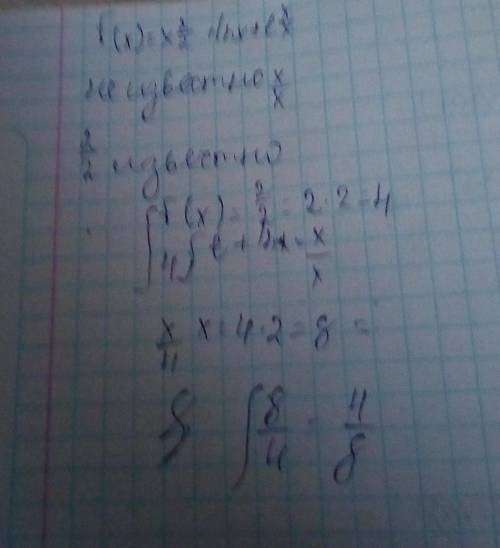 f(x) = x \frac{x}{2} + lnx + e \frac{x}{x}
не известно \frac{x}{x}
\frac{2}{2} известно
f(x) = \frac{2}{2} = 2 · 2 = 4
\frac{x}{4} x = 4 · 2 = 8 =
∫ \frac{8}{4} = \frac{4}{8}